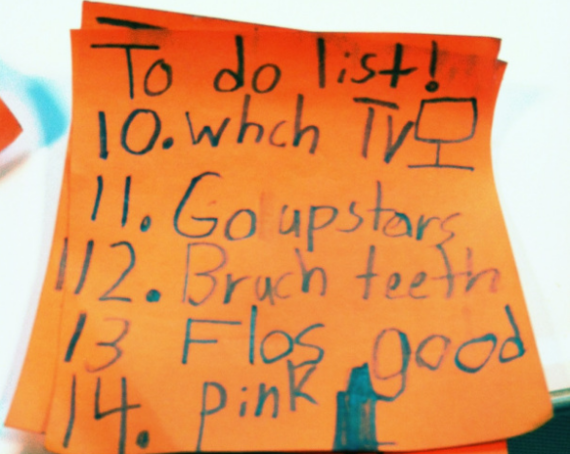 To do list!
10. whch TV
11. Go upstars
112. Bruch teeth
13 Flos good
14. pink